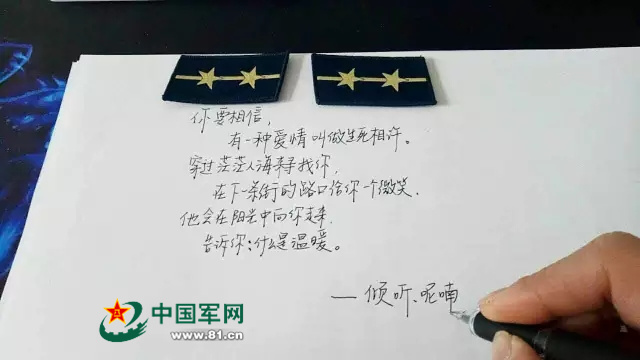 你要相信，
有一种爱情叫做生死相许。
穿过茫茫人海来寻找你，
在下一条街的路口给你一个微笑.
他会在阳光中向你走来.
告诉你：什么是温暖。
— 倾听.呢喃
中国军网
www.81.cn